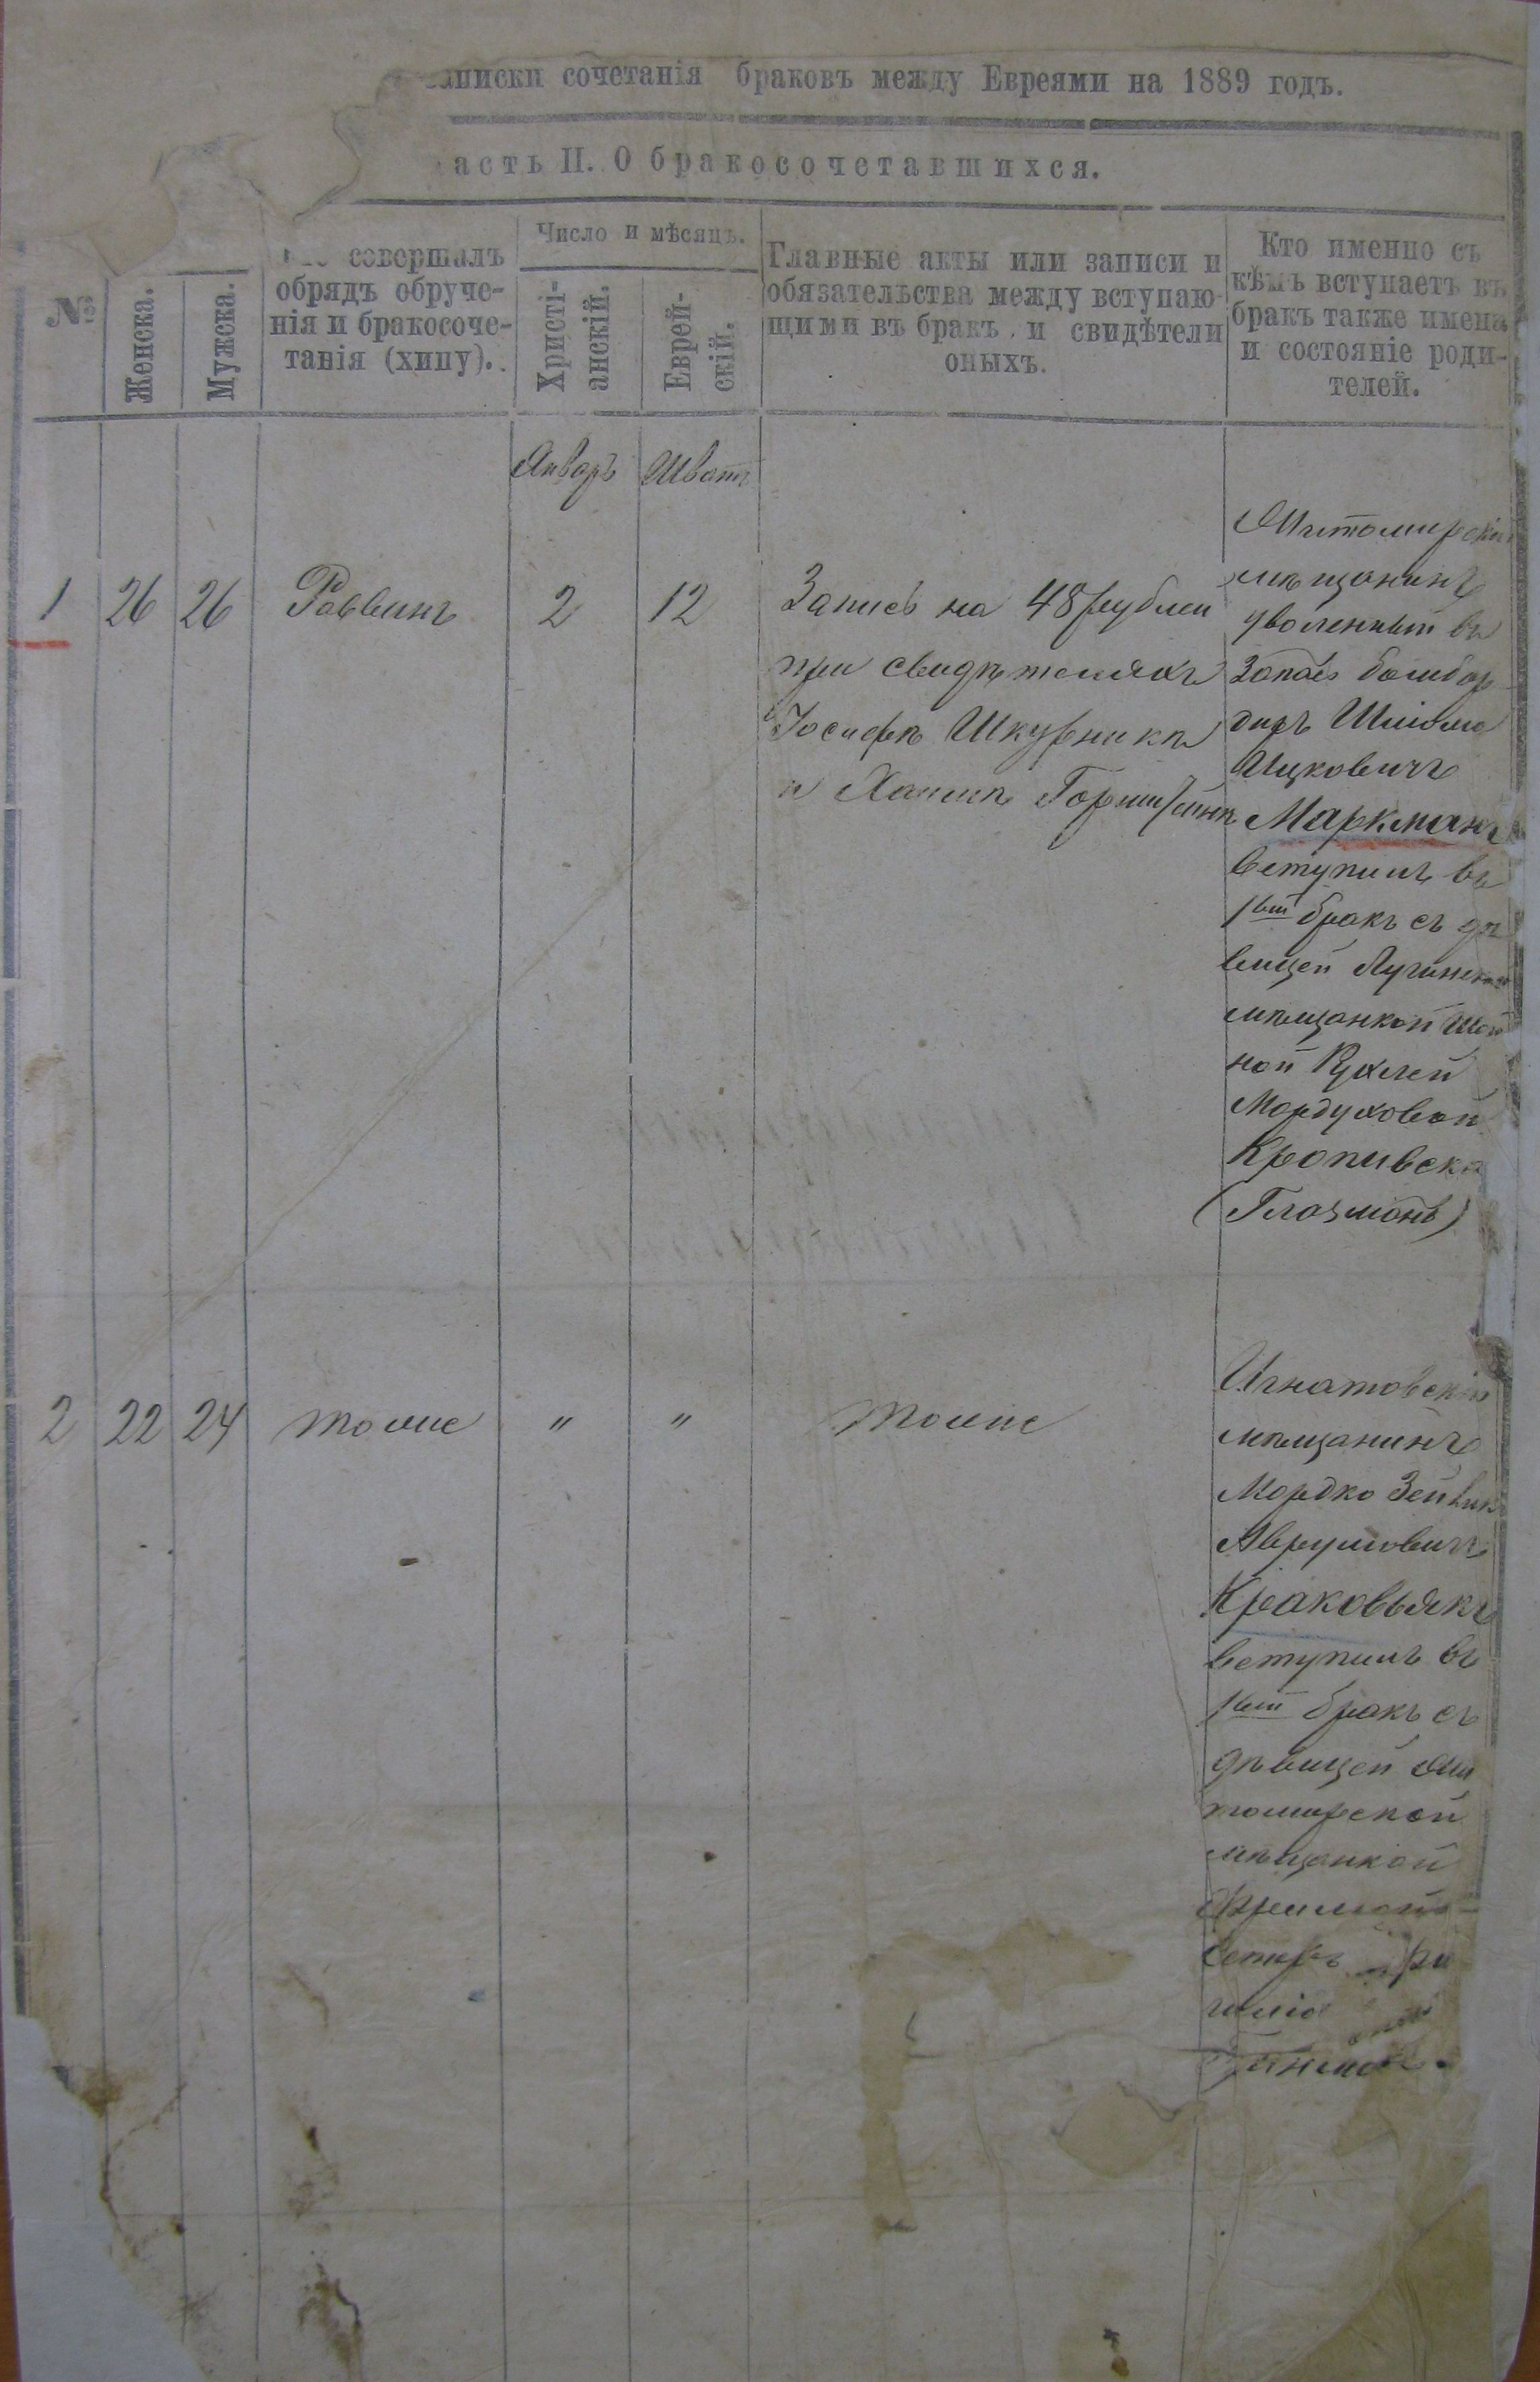 сочетанія браковъ между Евреями на 1889 годъ.
асть II. О бракосочетавшихся.
№
Женска.
Мужска.
совершалъ
обрядъ обруче-
нія и бракосоче-
танія (хипу).
Число и мѣсяцъ.
Христі-
анскій.
Еврей-
скій.
Главные акты или записи и
обязательства между вступаю
щими въ бракъ и свидѣтели
оныхъ.
Кто именно съ
кѣмъ вступаетъ въ
бракъ также имена
и состояніе роди-
телей.
Январь Шватъ
1 26 26 Раввинъ 2 12
Запись на 48 рублей
при свидѣтеляхъ
Іосифѣ Шкурникѣ
и Хаимѣ
Житомирскій
мѣщанинъ
уволенный въ
запасъ бомбар
диръ Шліома
Ицковичъ
Маркманъ
вступилъ въ
1вый бракъ съ дѣ
вицей Лугинской
мѣщанкой Шей
ной Рухлей
Мордуховой
Кропивска
(Глазманъ)
2 22 24 тоже " " тоже
Игнатовскій
мѣщанинъ
Мордко Зейвикъ
Аврумовичъ
Краковьякъ
вступилъ въ
1вый бракъ съ
дѣвицей Жи
томирской
мѣщанкой